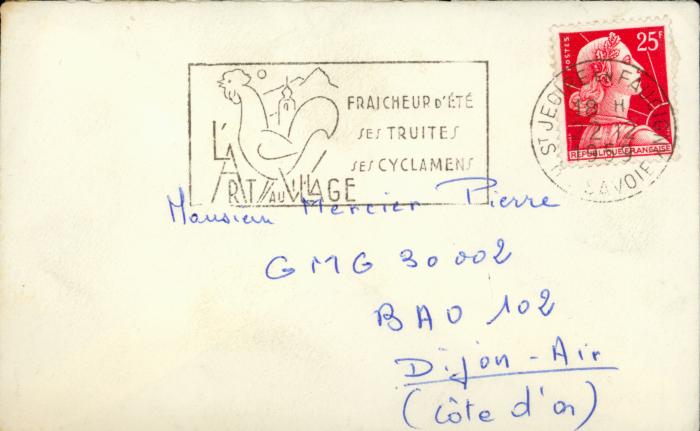 FRAICHEUR D'ÉTÉ
SES TRUITES
SES CYCLAMENS
L'ART AU VILLAGE
POSTES
25F
REPUBLIQUE FRANÇAISE
ST JEOIRE EN FAUCIGNY
18 H
2-12
1959
H SAVOIE
Monsieur Mercier Pierre
GMG 30002
BAO 102
Dijon-Air
(Côte d'or)